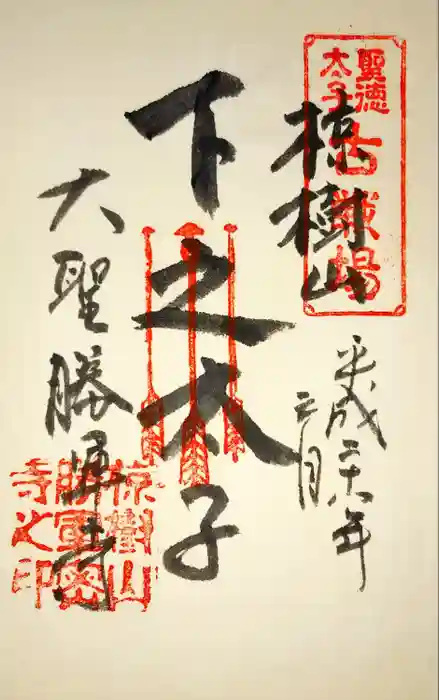 聖徳
太子
古戦場
椋樹山
平成二十六年
月
下之太子
大聖勝軍寺
椋樹山
勝軍
寺之印